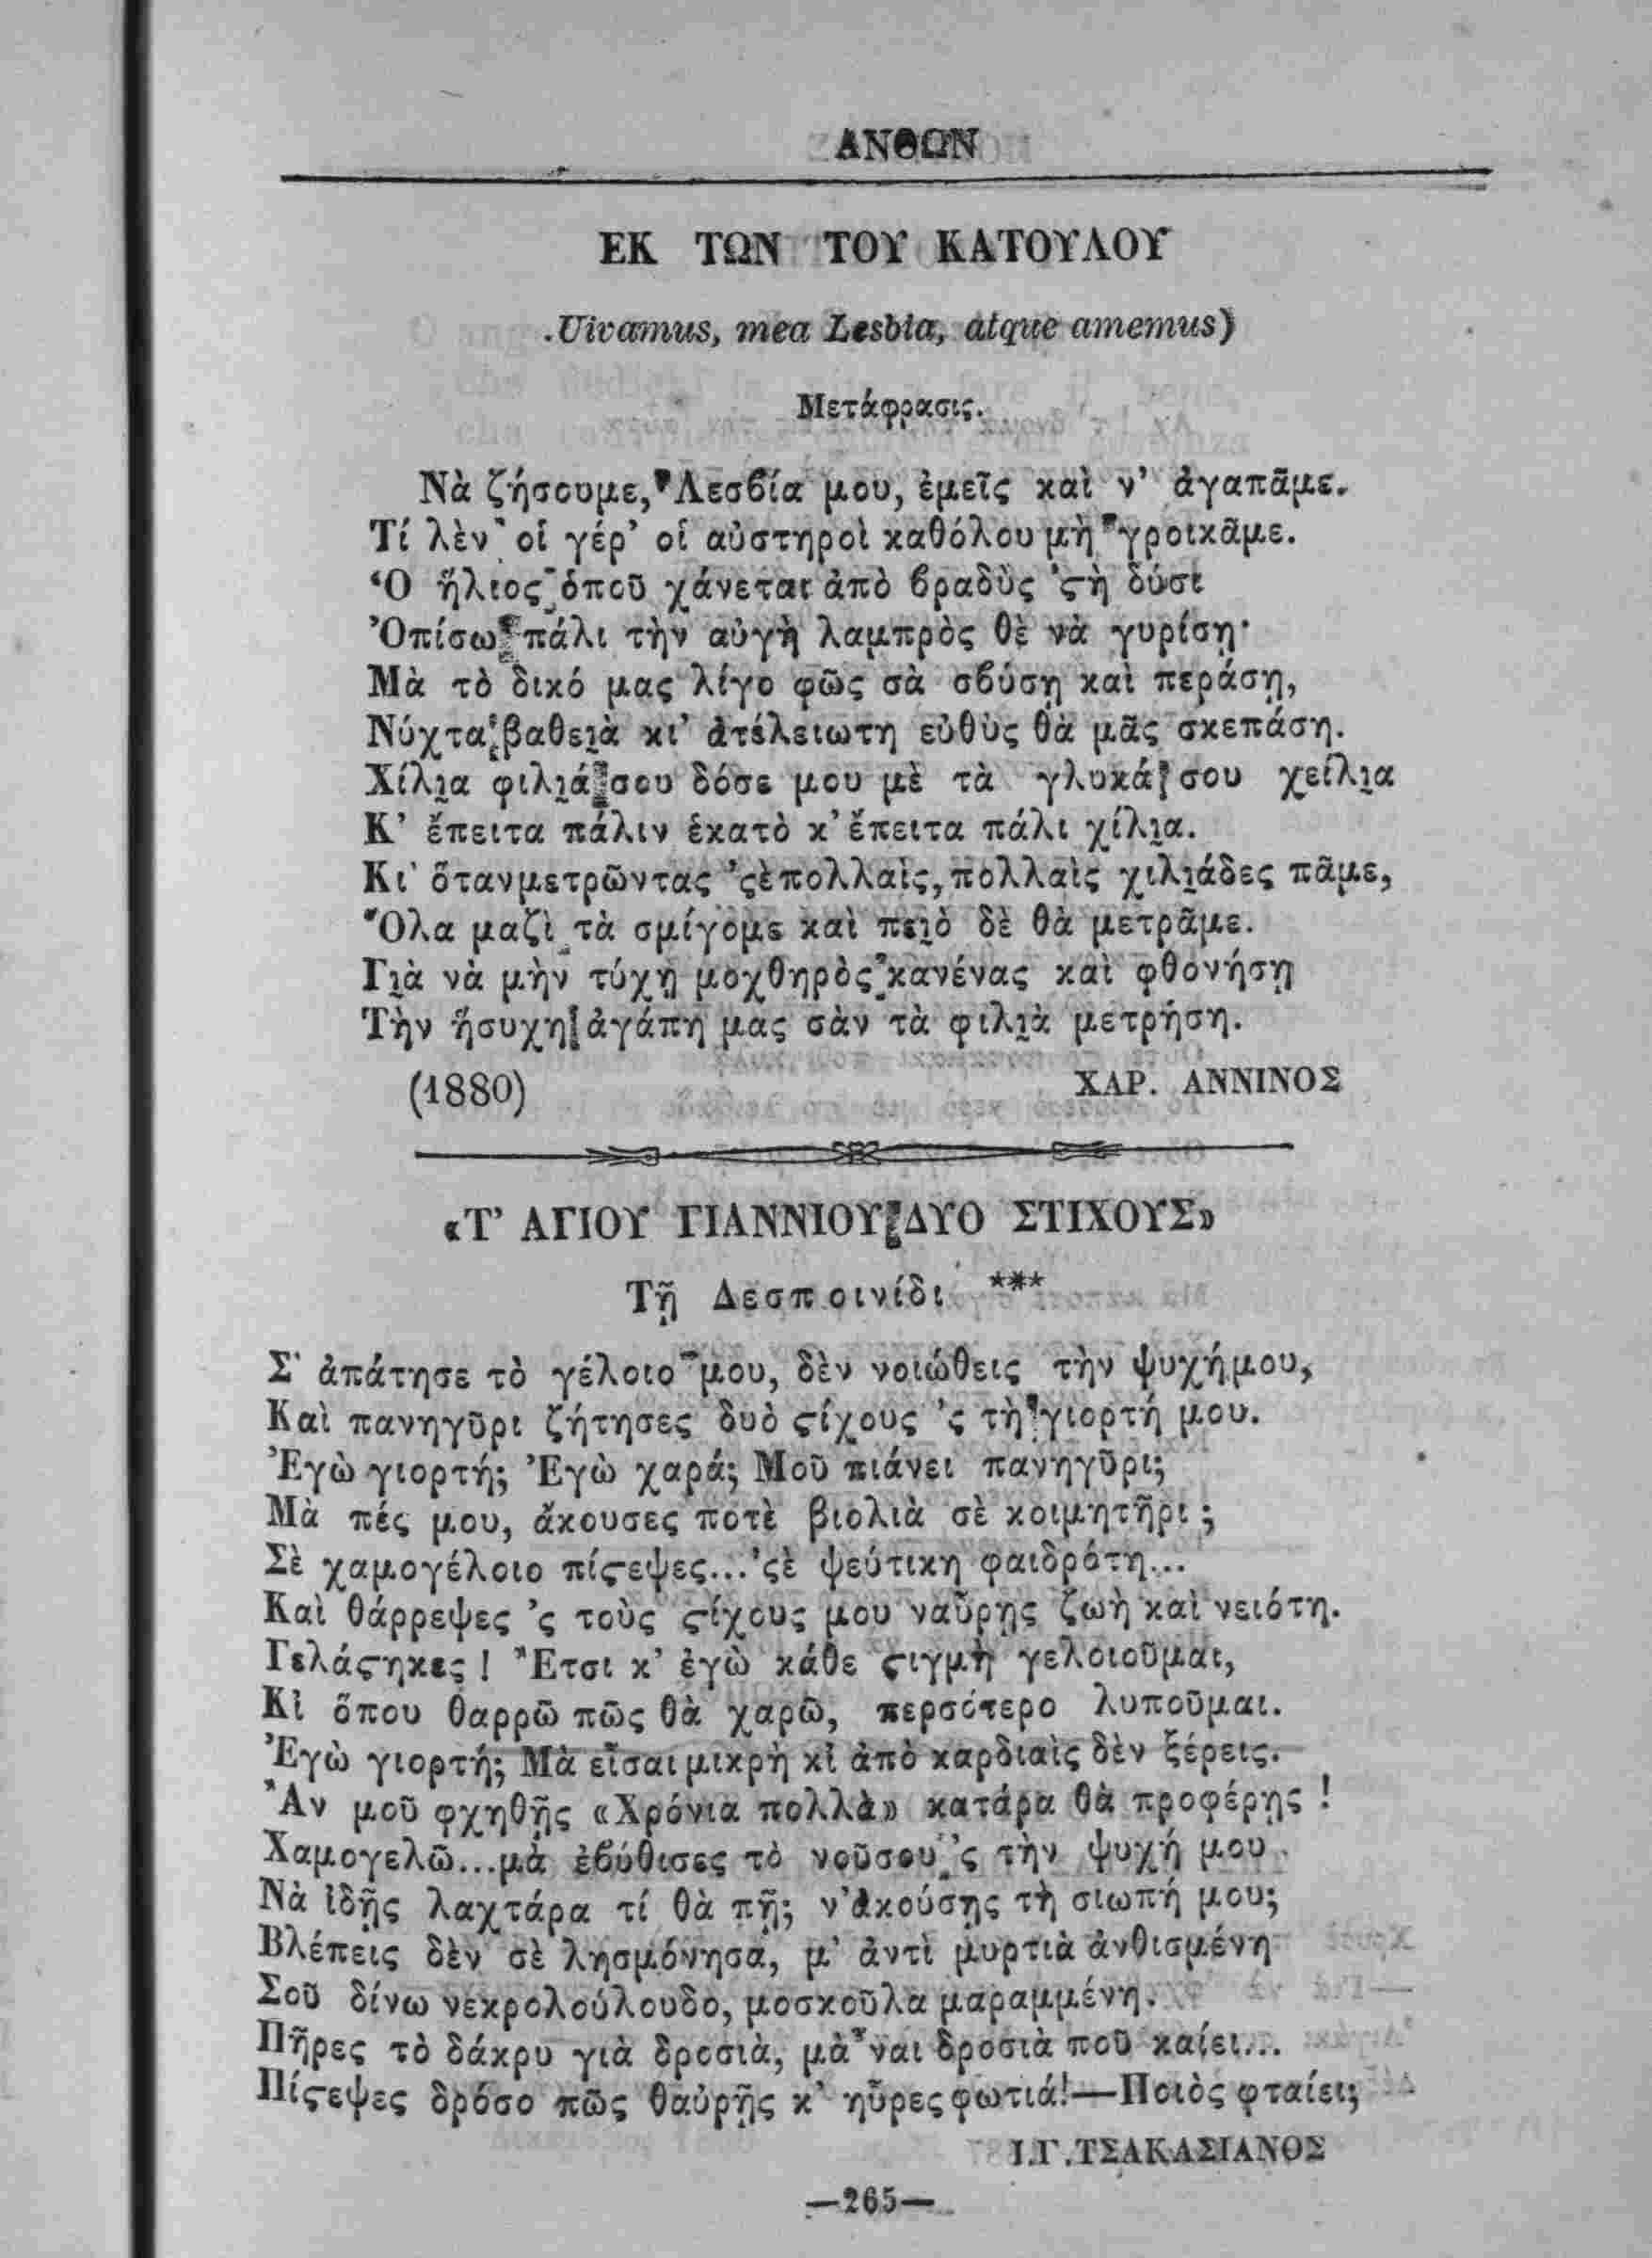 ΑΝΘΩΝ
ΕΚ ΤΩΝ ΤΟΥ ΚΑΤΟΥΛΟΥ
.Uivamus, mea Lesbia, atque amemus)
Μετάφρασις.
Νὰ ζήσουμε, Λεσβία μου, ἐμεῖς καὶ ν' ἀγαπᾶμε.
Τί λὲν οἱ γέρ' οἱ αὐστηροὶ καθόλου μὴ γροικᾶμε.
Ὁ ἥλιος ὁποῦ χάνεται ἀπὸ βραδὺς 'ςὴ δύσι
Ὀπίσω πάλι τὴν αὐγὴ λαμπρὸς θὲ νὰ γυρίσῃ·
Μὰ τὸ δικό μας λίγο φῶς σὰ σβύσῃ καὶ περάσῃ,
Νύχτα βαθειὰ κι' ἀτέλειωτη εὐθὺς θὰ μᾶς σκεπάσῃ.
Χίλια φιλιά σου δόσε μου μὲ τὰ γλυκά σου χείλια
Κ' ἔπειτα πάλιν ἑκατὸ κ' ἔπειτα πάλι χίλια.
Κι' ὅταν μετρῶντας 'ςὲ πολλαὶς, πολλαὶς χιλιάδες πᾶμε,
Ὅλα μαζὶ τὰ σμίγομε καὶ πειὸ δὲ θὰ μετρᾶμε.
Γιὰ νὰ μὴν τύχῃ μοχθηρὸς κανένας καὶ φθονήσῃ
Τὴν ἥσυχη ἀγάπη μας σὰν τὰ φιλιὰ μετρήσῃ.
(1880) ΧΑΡ. ΑΝΝΙΝΟΣ
«Τ' ΑΓΙΟΥ ΓΙΑΝΝΙΟΥ ΔΥΟ ΣΤΙΧΟΥΣ»
Τῇ Δεσποινίδι ***
Σ' ἀπάτησε τὸ γέλοιο μου, δὲν νοιώθεις τὴν ψυχή μου,
Καὶ πανηγῦρι ζήτησες δυὸ ϛίχους 'ς τὴ γιορτή μου.
Ἐγὼ γιορτή; Ἐγὼ χαρά; Μοῦ πιάνει πανηγῦρι;
Μὰ πές μου, ἄκουσες ποτὲ βιολιὰ σὲ κοιμητῆρι;
Σὲ χαμογέλοιο πίϛεψες... 'ςὲ ψεύτικη φαιδρότη...
Καὶ θάρρεψες 'ς τοὺς ϛίχους μου ναὔρῃς ζωὴ καὶ νειότη.
Γελάϛηκες! Ἔτσι κ' ἐγὼ κάθε ϛιγμὴ γελοιοῦμαι,
Κὶ ὅπου θαρρῶ πῶς θὰ χαρῶ, περσότερο λυποῦμαι.
Ἐγὼ γιορτή; Μὰ εἶσαι μικρὴ κὶ ἀπὸ καρδιαὶς δὲν ξέρεις.
Ἂν μοῦ φχηθῇς «Χρόνια πολλὰ» κατάρα θὰ προφέρῃς!
Χαμογελῶ... μὰ ἐβύθισες τὸ νοῦ σου 'ς τὴν ψυχή μου
Νὰ ἰδῇς λαχτάρα τί θὰ πῇ; ν' ἀκούσῃς τὴ σιωπή μου;
Βλέπεις δὲν σὲ λησμόνησα, μ' ἀντὶ μυρτιὰ ἀνθισμένη
Σοῦ δίνω νεκρολούλουδο, μοσκοῦλα μαραμμένη.
Πῆρες τὸ δάκρυ γιὰ δροσιὰ, μὰ ναι δροσιὰ ποῦ καίει...
Πίϛεψες δρόσο πῶς θαὐρῇς κ' ηὗρες φωτιά!—Ποιὸς φταίει;
Ι.Γ.ΤΣΑΚΑΣΙΑΝΟΣ
—265—